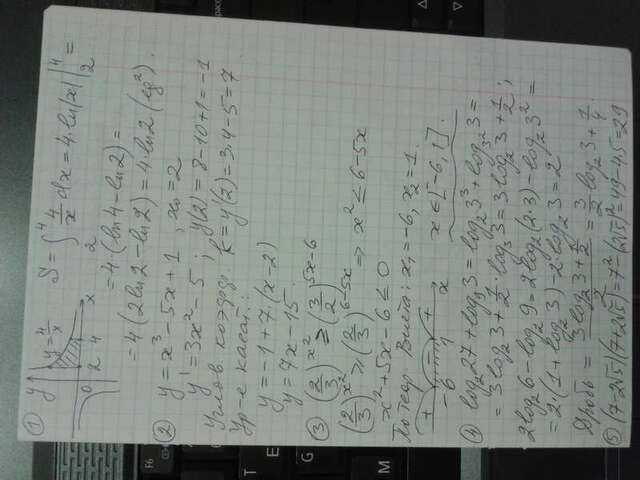 ① y y=4/x S = ∫₂⁴ 4/x dx = 4·ln|x| |₂⁴ =
0 2 4 x = 4(ln4 − ln2) =
= 4(2ln2 − ln2) = 4·ln2 (ед²).
② y = x³ − 5x + 1, x₀ = 2
y' = 3x² − 5; y(2) = 8 − 10 + 1 = −1
Углов коэфф: k = y'(2) = 3·4 − 5 = 7
Ур-е касат.:
y = −1 + 7(x − 2)
y = 7x − 15.
③ (2/3)^x² ≥ (3/2)^5x−6
(2/3)^x² ≥ (2/3)^6−5x => x² ≤ 6 − 5x
x² + 5x − 6 ≤ 0
По теор Виета: x₁ = −6, x₂ = 1.
+ − + x ∈ [−6, 1].
−6 1 x
④ log₂27 + log₄3 = log₂3³ + log₂²3 =
= 3log₂3 + 1/2·log₂3 = 3log₂3 + 1/2;
2log₂6 − log₂9 = 2log₂(2·3) − log₂3² =
= 2·(1 + log₂3) − 2·log₂3 = 2
Дробь = (3log₂3 + 1/2)/2 = 3/2 log₂3 + 1/4.
⑤ (7−2√5)(7+2√5) = 7² − (2√5)² = 49 − 4·5 = 29
F6
E
T
G
M